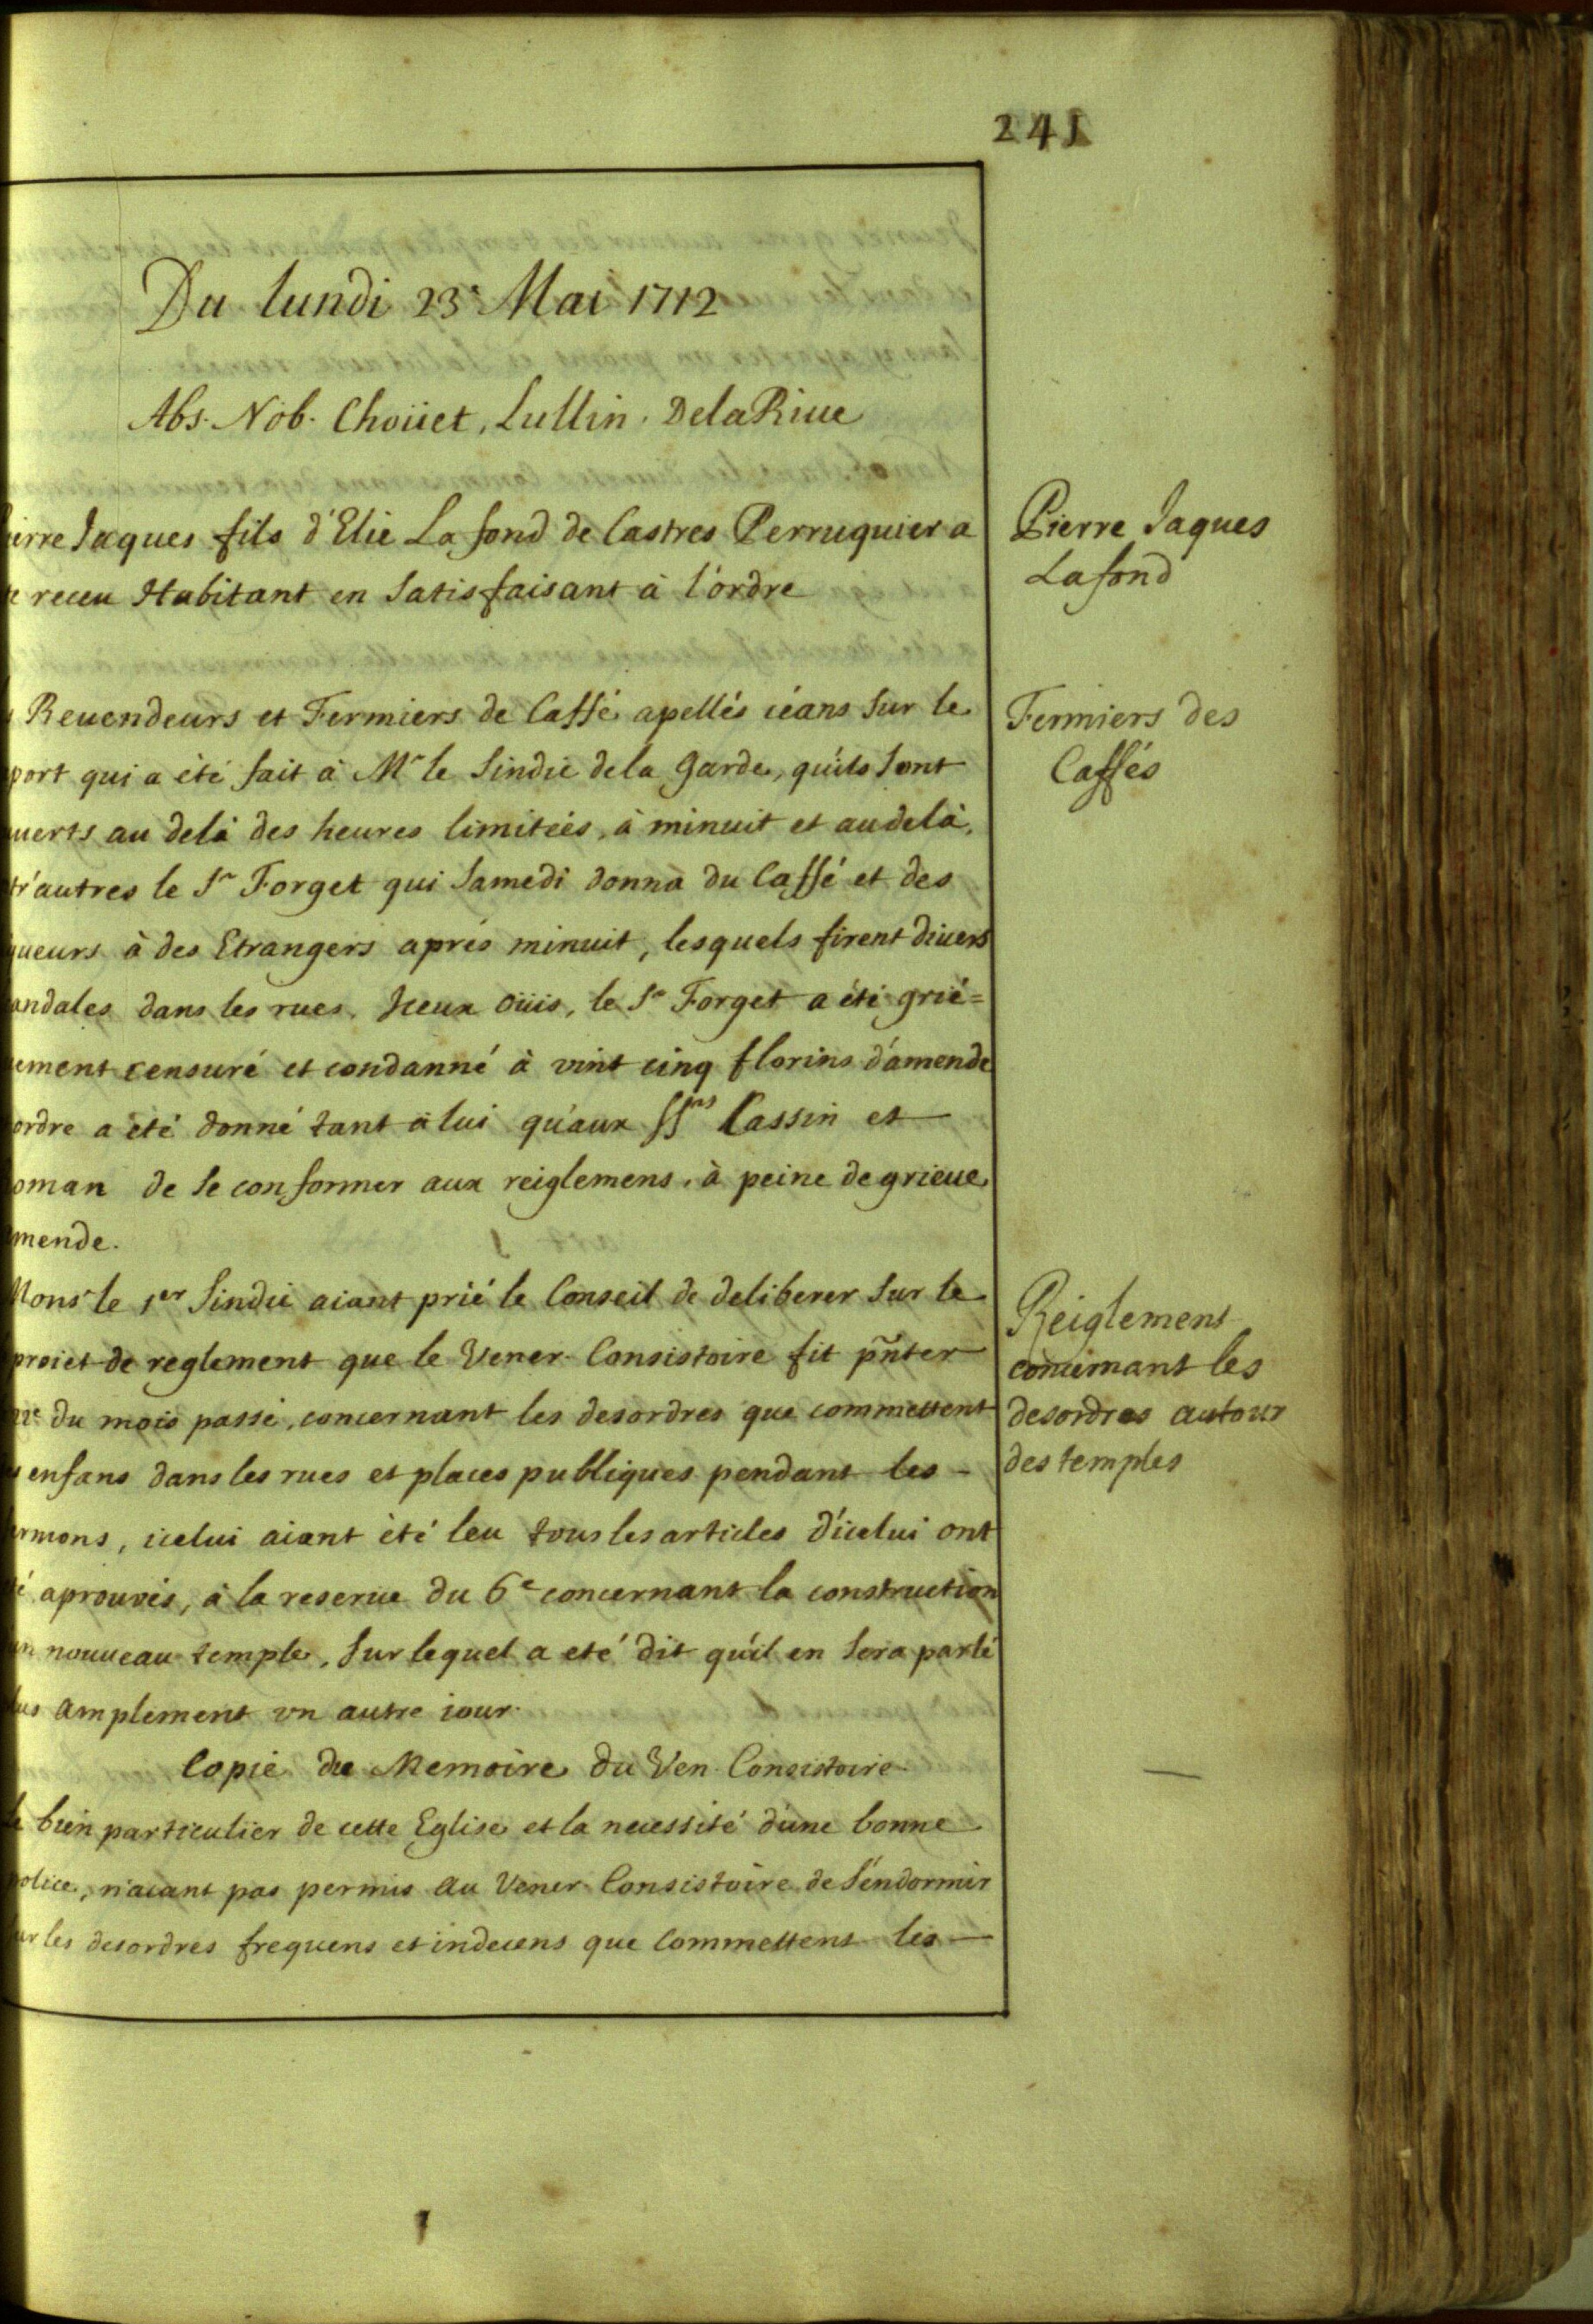 241
Du lundi 23e Mai 1712
Abs. Nob. Choüet, Lullin, DelaRiue
ierre Jaques fils d'Elie Lafond de Castres Perruquier a
receu Habitant en satisfaisant à l'ordre
Pierre Jaques
Lafond
Reuendeurs et Fermiers de Caffé apellés céans sur le
port qui a été fait à Mr le Sindic dela garde, qu'ils sont
uerts au delà des heures limitées, à minuit et audelà,
tr'autres le Sr Forget qui samedi donna du Caffé et des
queurs à des Etrangers aprés minuit, lesquels firent diuers
andales dans les rues. Iceux oüis, le Sr Forget a été grié=
uement censuré et condanné à vint cinq florins d'amende
ordre a été donné tant à lui qu'aux SSrs Cassin et
oman de se conformer aux reiglemens, à peine de grieue
mende.
Fermiers des
Caffés
Mons le 1er Sindic aiant prié le Conseil de deliberer sur le
proiet de reglement que le Vener. Consistoire fit pñter
22e du mois passé, concernant les desordres que commettent
enfans dans les rues et places publiques pendant les -
ermons, icelui aiant été leu tous les articles d'icelui ont
té aprouvés, à la reserue du 6e concernant la construction
un nouueau temple, sur lequel a eté dit qu'il en sera parlé
lus amplement vn autre iour.
Reiglement
concernant les
desordres autour
des temples
Copie du Memoire du Ven. Consistoire
le bien particulier de cette Eglise et la necessité d'une bonne
police, n'aiant pas permis au Vener. Consistoire de s'endormir
ur les desordres frequens et indecens que commettent les —